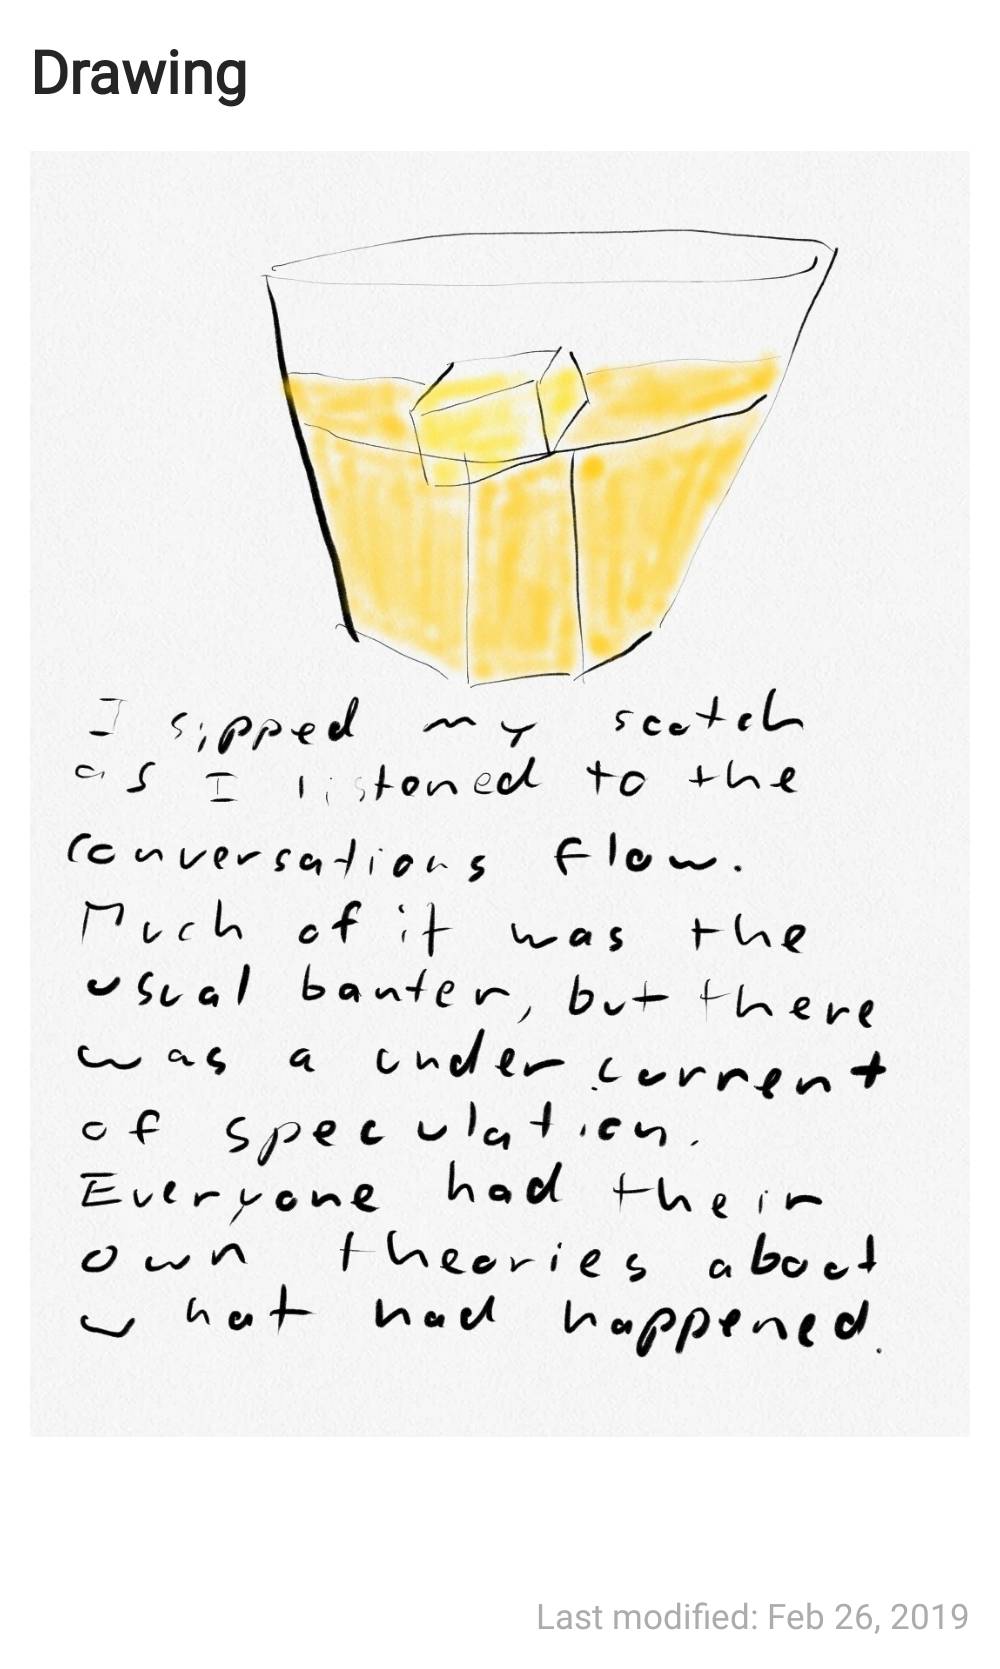 Drawing
I sipped my scotch
as I listened to the
conversations flow.
Much of it was the
usual banter, but there
was a undercurrent
of speculation.
Everyone had their
own theories about
what had happened.
Last modified: Feb 26, 2019